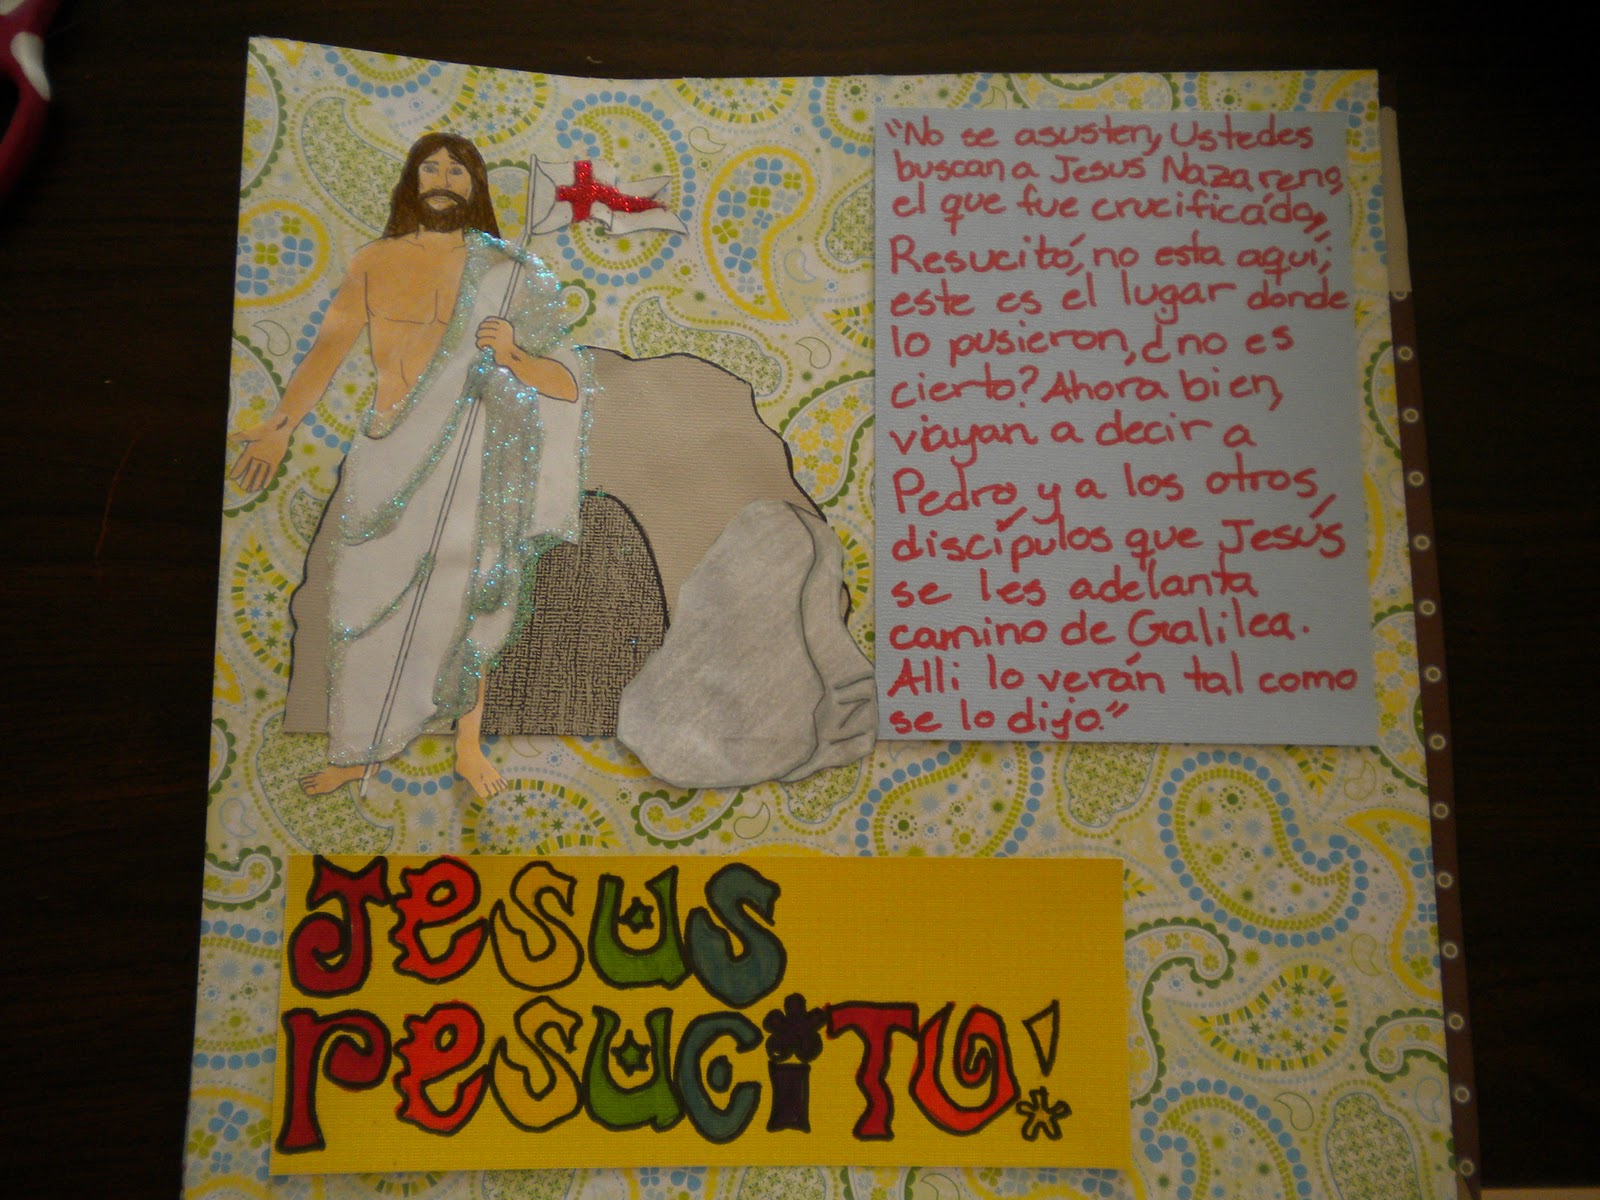 "No se asusten, Ustedes
buscan a Jesus Nazareno,
el que fue crucificado,
Resucitó, no esta aquí;
este es el lugar donde
lo pusieron, ¿no es
cierto? Ahora bien,
vayan a decir a
Pedro y a los otros
discípulos que Jesús
se les adelanta
camino de Galilea.
Alli lo verán tal como
se lo dijo."
Jesus
resucito!